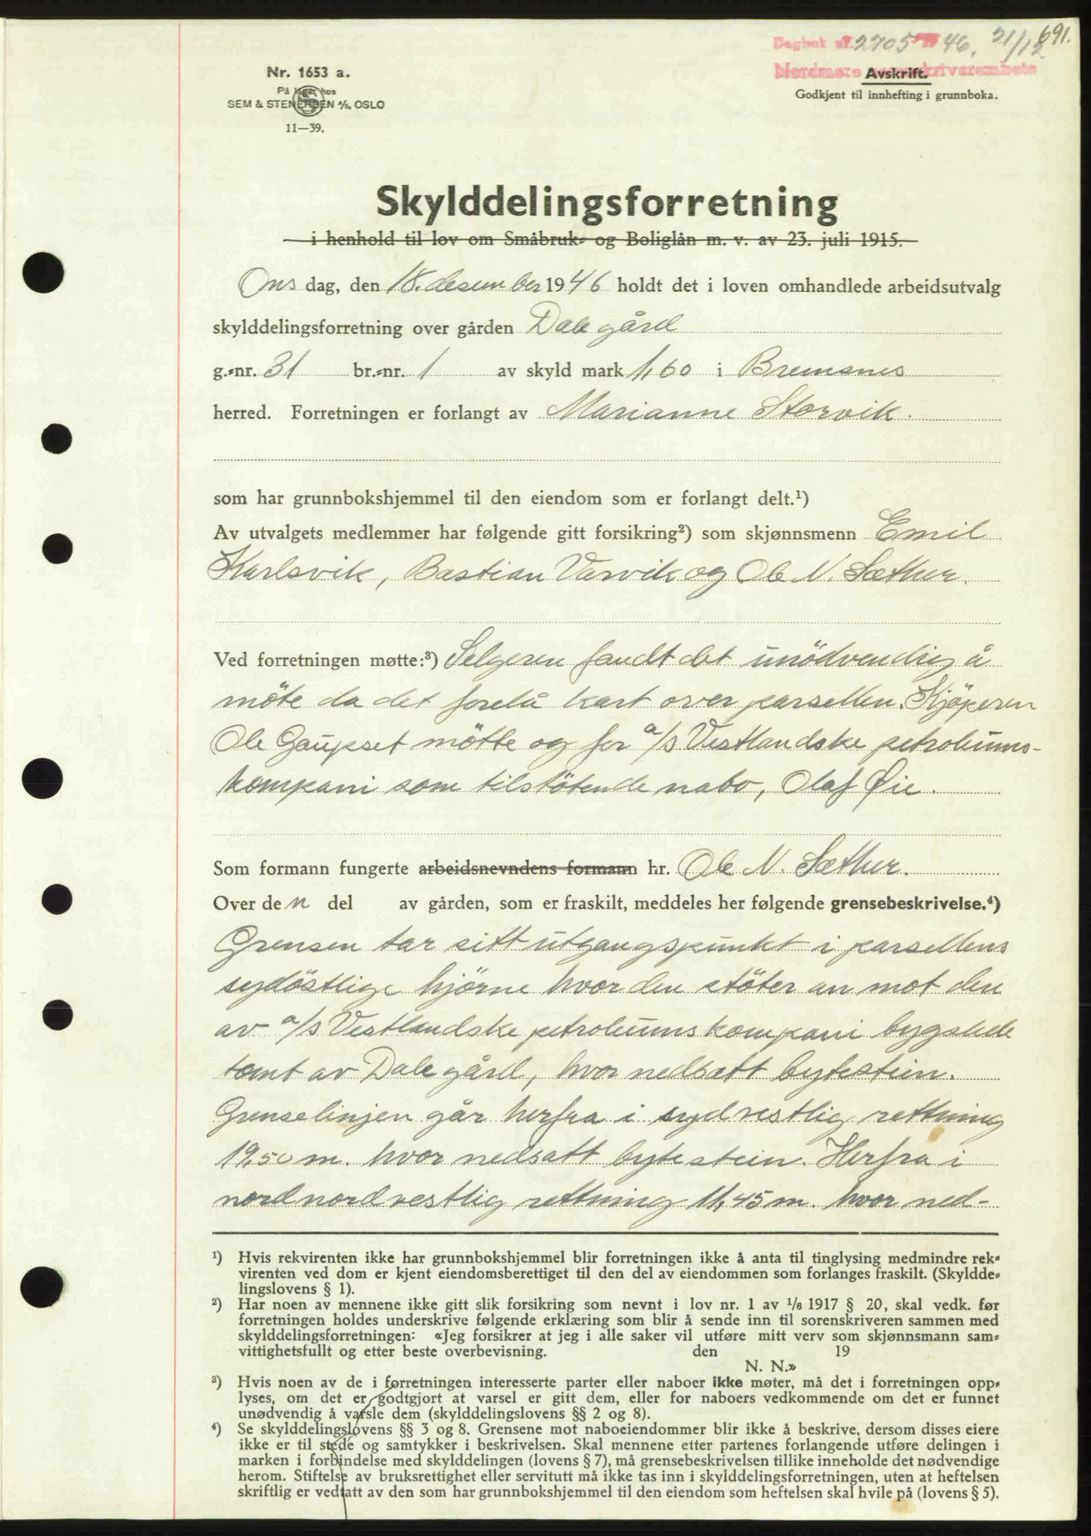 691.
Dagbok nr. 2705 1946, 21/12
Nordmøre sorenskriverembete
Avskrift.
Godkjent til innhefting i grunnboka.
Nr. 1653 a.
På lager hos
SEM & STENERSEN A/S, OSLO
11—39.
Skylddelingsforretning
i henhold til lov om Småbruk- og Boliglån m. v. av 23. juli 1915.
Onsdag, den 18. desember 1946 holdt det i loven omhandlede arbeidsutvalg
skylddelingsforretning over gården Dale gård
g.-nr. 31 br.-nr. 1 av skyld mark 1,60 i Bremsnes
herred. Forretningen er forlangt av Marianne Storvik.
som har grunnbokshjemmel til den eiendom som er forlangt delt.¹)
Av utvalgets medlemmer har følgende gitt forsikring²) som skjønnsmenn Emil
Karlsvik, Bastian Varvik og Ole N. Sæther.
Ved forretningen møtte:³) Selgeren fandt det unödvendig å
möte da det forelå kart over parsellen. Kjöperen
Ole Gaupset mötte og for a/s Vestlandske petroleums-
kompani som tilstötende nabo, Olaf Øie.
Som formann fungerte arbeidsnevndens formann hr. Ole N. Sæther.
Over den del av gården, som er fraskilt, meddeles her følgende grensebeskrivelse.⁴)
Grensen tar sitt utgangspunkt i parsellens
sydöstlige hjörne hvor den stöter an mot den
av a/s Vestlandske petroleumskompani bygslede
tomt av Dale gård, hvor nedsatt bytestein.
Grenselinjen går herfra i sydvestlig rettning
19,50 m. hvor nedsatt bytestein. Herfra i
nordnordvestlig rettning 11,45 m. hvor ned-
¹) Hvis rekvirenten ikke har grunnbokshjemmel blir forretningen ikke å anta til tinglysing medmindre rek-
virenten ved dom er kjent eiendomsberettiget til den del av eiendommen som forlanges fraskilt. (Skyldde-
lingslovens § 1).
²) Har noen av mennene ikke gitt slik forsikring som nevnt i lov nr. 1 av 1/6 1917 § 20, skal vedk. før
forretningen holdes underskrive følgende erklæring som blir å sende inn til sorenskriveren sammen med
skylddelingsforretningen: «Jeg forsikrer at jeg i alle saker vil utføre mitt verv som skjønnsmann sam-
vittighetsfullt og etter beste overbevisning. den 19
N. N.»
³) Hvis noen av de i forretningen interesserte parter eller naboer ikke møter, må det i forretningen opp-
lyses, om det er godtgjort at varsel er gitt dem, eller for naboers vedkommende om det er funnet
unødvendig å varsle dem (skylddelingslovens §§ 2 og 8).
⁴) Se skylddelingslovens §§ 3 og 8. Grensene mot naboeiendommer blir ikke å beskrive, dersom disses eiere
ikke er til stede og samtykker i beskrivelsen. Skal mennene etter partenes forlangende utføre delingen i
marken i forbindelse med skylddelingen (lovens § 7), må grensebeskrivelsen tillike inneholde det nødvendige
herom. Stiftelse av bruksrettighet eller servitutt må ikke tas inn i skylddelingsforretningen, uten at heftelsen
skriftlig er vedtatt av den som har grunnbokshjemmel til den eiendom som heftelsen skal hvile på (lovens § 5).